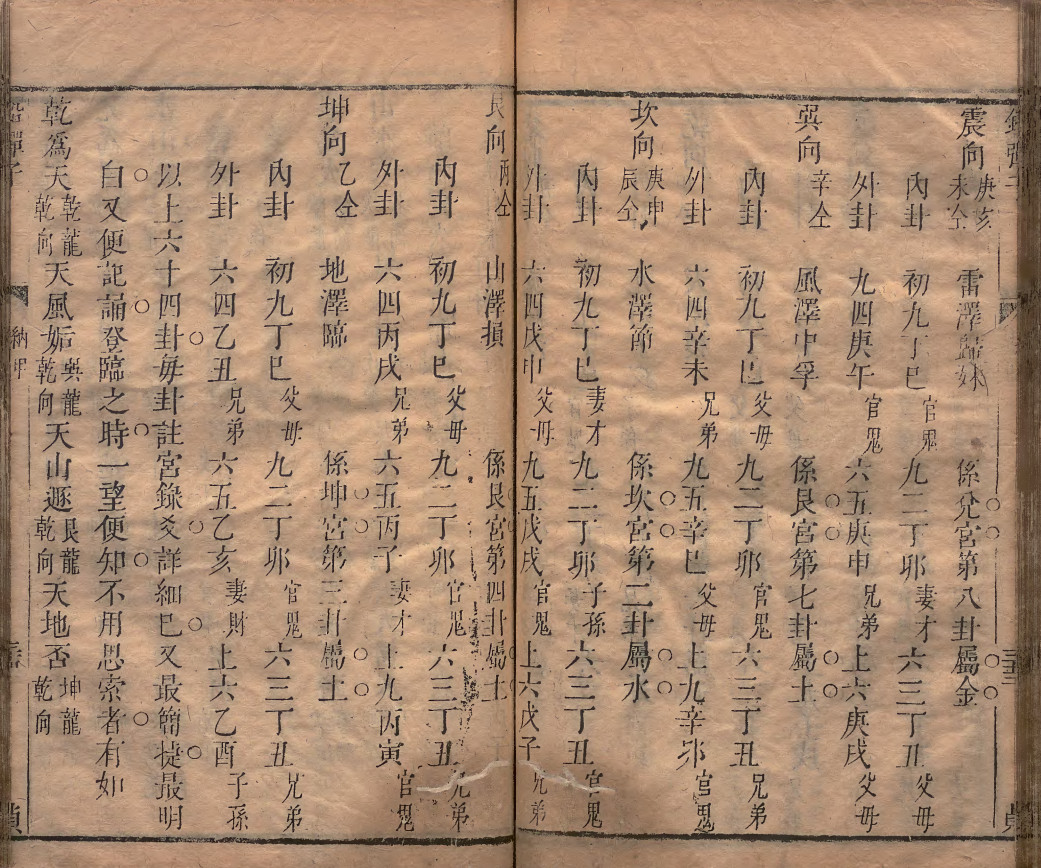 震向 庚亥未仝 雷澤歸妹 係兌宮第八卦屬金
內卦 初九丁巳 官鬼 九二丁卯 妻才 六三丁丑 父母
外卦 九四庚午 官鬼 六五庚申 兄弟 上六庚戌 父母
巽向 辛仝 風澤中孚 係艮宮第七卦屬土
內卦 初九丁巳 父母 九二丁卯 官鬼 六三丁丑 兄弟
外卦 六四辛未 兄弟 九五辛巳 父母 上九辛卯 官鬼
坎向 庚申辰仝 水澤節 係坎宮第二卦屬水
內卦 初九丁巳 妻才 九二丁卯 子孫 六三丁丑 官鬼
外卦 六四戊申 父母 九五戊戌 官鬼 上六戊子 兄弟
艮向 丙仝 山澤損 係艮宮第四卦屬土
內卦 初九丁巳 父母 九二丁卯 官鬼 六三丁丑 兄弟
外卦 六四丙戌 兄弟 六五丙子 妻才 上九丙寅 官鬼
坤向 乙仝 地澤臨 係坤宮第三卦屬土
內卦 初九丁巳 父母 九二丁卯 官鬼 六三丁丑 兄弟
外卦 六四乙丑 兄弟 六五乙亥 妻財 上六乙酉 子孫
以上六十四卦每卦註宮錄爻詳細巳又最簡捷最明
白又便記誦登臨之時一望便知不用思索者有如
乾爲天 乾龍乾向 天風姤 巽龍乾向 天山遯 艮龍乾向 天地否 坤龍乾向
納甲
貞